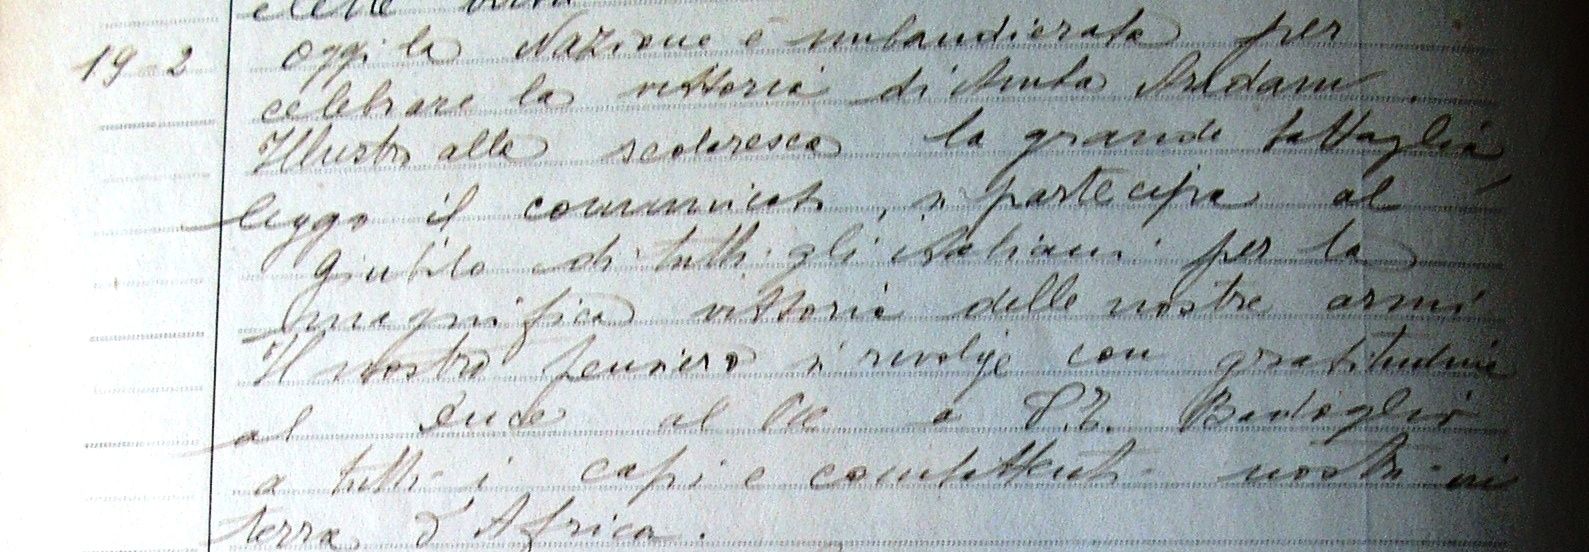 19-2 Oggi la Nazione è imbandierata per
celebrare la vittoria di Amba Aradam.
Illustro alla scolaresca la grande battaglia,
leggo il comunicato, si partecipa al
giubilo di tutti gli italiani per la
magnifica vittoria delle nostre armi
Il nostro pensiero si rivolge con gratitudine
al Duce al Re a S.E. Badoglio
a tutti i capi e combattenti nostri in
terra d'Africa.